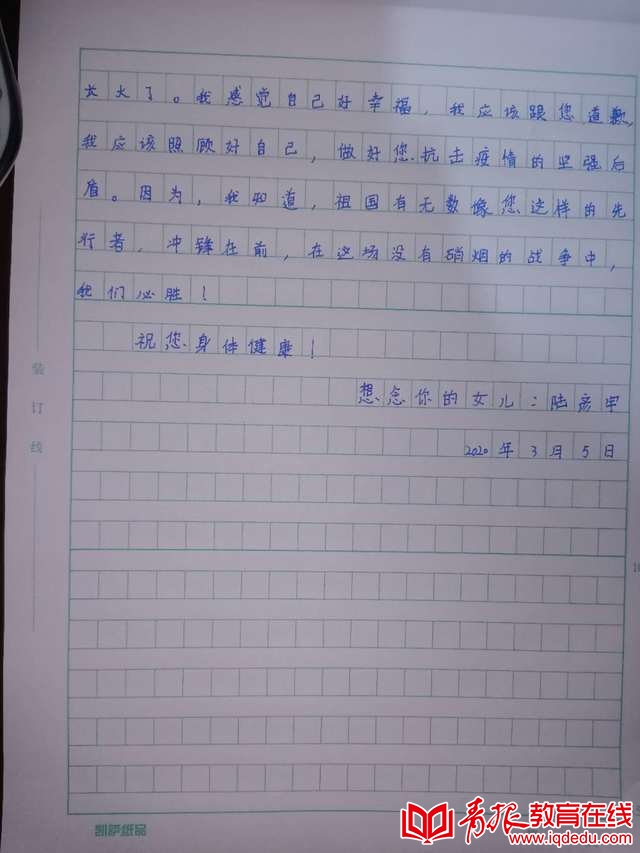 长大了。我感觉自己好幸福，我应该跟您道歉，
我应该照顾好自己，做好您抗击疫情的坚强后
盾。因为，我知道，祖国有无数像您这样的先
行者，冲锋在前，在这场没有硝烟的战争中，
我们必胜！
祝您身体健康！
想念你的女儿：陆彦
2020年3月5日
装
订
线
凯萨纸品
青报教育在线
www.iqdedu.com